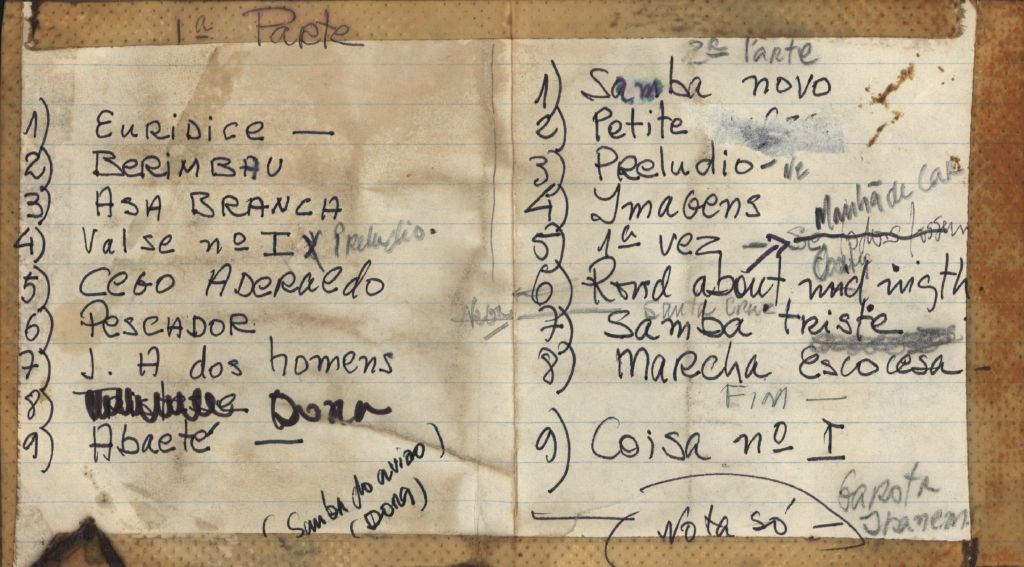 1ª Parte
1) EURIDICE —
2) BERIMBAU
3) ASA BRANCA
4) Valse nº I X Preludio.
5) CEGO ADERALDO
6) PESCADOR
7) J. A dos homens
8) Dora
9) Abaeté —
(Samba do avião)
(DORA)
2ª Parte
1) Samba novo
2) Petite
3) PRELUDIO -
4) Imagens
5) 1ª vez → Manhã de
6) Rond about mid nigth
Santa Cruz
7) Samba triste
8) MARCHA ESCOCESA -
FIM —
9) Coisa nº I
(Nota só — Garota
Ipanem